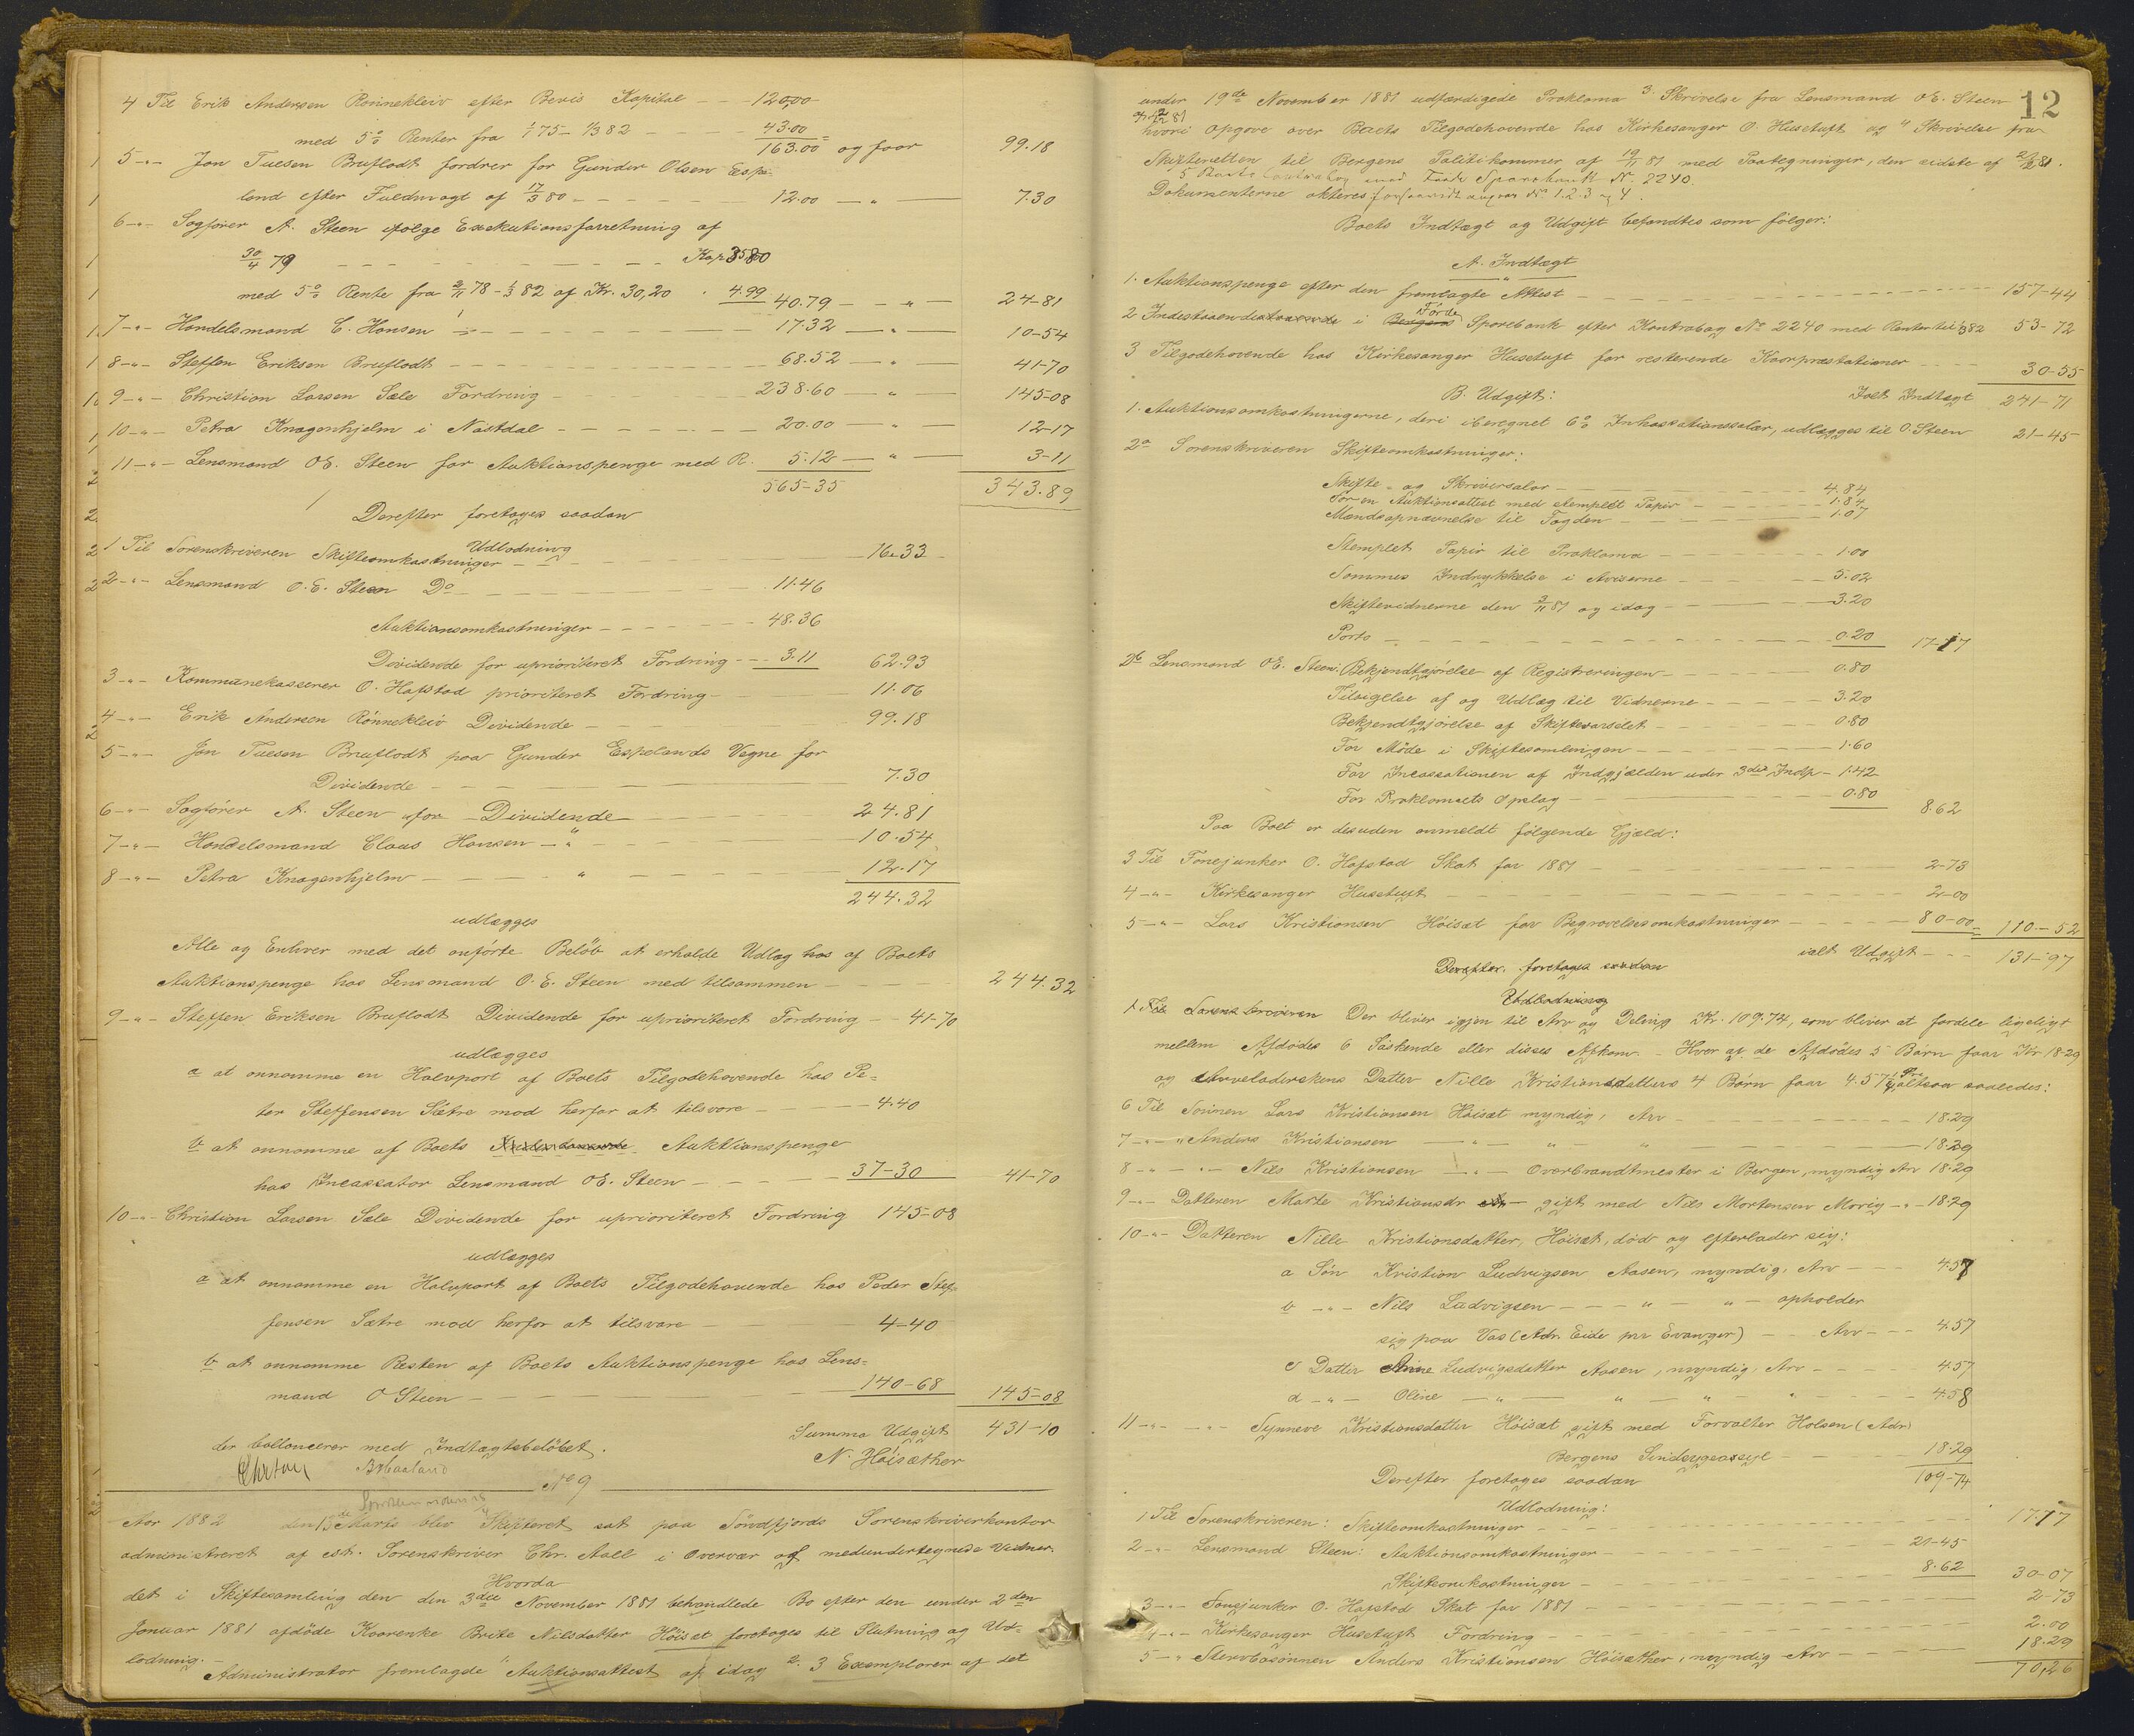 4 Til Erik Andersen Rønnekleiv efter Bevis Kapital - - 120,00
med 5% Renter fra 1/1 75 - 1/3 82 - - - 43.00
163.00 = og faar 99.18
5 -"- Jon Tuesen Bruflodt fordrer for Gunder Olsen Espe-
land efter Fuldmagt af 17/3 80 - - - 12.00 - " - 7.30
6 -"- Sagfører A. Steen ifølge Exekutionsforretning af
30/4 79 - - - Kap 35.80
med 5% Rente fra 2/11 78 - 1/3 82 af Kr. 30,20 . 4.99 40.79 - " - 24-81
7 -"- Handelsmand C. Hansen - - - 17.32 - " - 10-54
8 -"- Steffen Eriksen Bruflodt - - - 68.52 - " - 41-70
9 -"- Christian Larsen Sæle Fordring - - - 238.60 - " - 145-08
10 -"- Petra Knagenhjelm i Nøstdal - - - 20.00 - " - 12-17
11 -"- Lensmand O.E. Steen for Auktionspenge med R. 5.12 - " - 3-11
565-35 343.89
Derefter foretages saadan
Udlodning
1 Til Sorenskriveren Skifteomkastninger - - - 16.33
2 -"- Lensmand O.E. Steen Do - - - 11.46
Auktionsomkastninger - - - 48.36
Dividende for uprioriteret Fordring - - 3.11 62.93
3 -"- Kommunekasserer O. Hafstad prioriteret Fordring - - - 11.06
4 -"- Erik Andersen Rønnekleiv Dividende - - - 99.18
5 -"- Jon Tuesen Bruflodt paa Gunder Espelands Vegne for
Dividende - - - 7.30
6 -"- Sagfører A. Steen for Dividende - - - 24.81
7 -"- Handelsmand Claus Hansen - " - - - 10.54
8 -"- Petra Knagenhjelm - - " - - - 12.17
244.32
udlægges
Alle og Enhver med det anførte Beløb at erholde Udlag hos af Boets
Auktionspenge hos Lensmand O.E. Steen med tilsammen - - - 244.32
9 -"- Steffen Eriksen Bruflodt Dividende for uprioriteret Fordring - - 41-70
udlægges
a at annamme en Halvpart af Boets Tilgodehavende hos Pe-
ter Steffensen Sætre mod herfor at tilsvare - - - 4.40
b at annamme af Boets Auktionspenge
hos Incassator Lensmand O.E. Steen - - - 37-30 41-70
10 -"- Christian Larsen Sæle Dividende for uprioriteret Fordring 145-08
udlægges
a at annamme en Halvpart af Boets Tilgodehavende hos Peder Stef-
fensen Sætre mod herfor at tilsvare - - - 4-40
b at annamme Resten af Boets Auktionspenge hos Lens-
mand O Steen - - - 140-68 145-08
Summa Udgift 431-10
der ballancerer med Indtægtsbeløbet.
N. Høisæther
No 9
Aar 1882 den 15de Marts blev Skifteret sat paa Søndfjords Sorenskriverkontor
administreret af cst. Sorenskriver Chr. Aall i Overvær af medundertegnede Vidner.
Hvorda
det i Skiftesamling den den 3die November 1881 behandlede Bo efter den under 2den
Januar 1881 afdøde Kaarenke Brite Nilsdatter Høisæt foretages til Slutning og Ud-
lodning.-
Administrator fremlagde 1 Auktionsattest af idag 2. 3 Exemplarer af det
12
under 19de November 1881 udfærdigede Proklama 3. Skrivelse fra Lensmand O.E. Steen
hvori Opgave over Boets Tilgodehavende hos Kirkesanger O. Husetuft og 4 Skrivelse fra
Skifteretten til Bergens Politikammer af 19/11 81 med Paategninger, den sidste af
5 Boets Contrabog med Førde Sparebank No. 2240.
Dokumenterne akteres No 1. 2. 3 og 4.
Boets Indtægt og Udgift befandtes som følger:
A. Indtægt
1. Auktionspenge efter den fremlagte Attest - - - 157-44
2 Indestaaende i Bergens Førde Sparebank efter Kontrabog No 2240 med Renter til 1/3 82 53-72
3 Tilgodehavende hos Kirkesanger Husetuft for resterende Kaarpræstationer - - 30-55
Ialt Indtægt 241-71
B. Udgift:
1. Auktionsomkostningerne, deri iberegnet 6% Inkassationssalær, udlægges til O. Steen 21-45
2a Sorenskriveren Skifteomkostninger:
Skifte- og Skriversalær - - - 4.84
For en Auktionsattest med stemplet Papir - - 1.84
Mandsopnævnelse til Fogden - - - 1.07
Stemplet Papir til Proklama - - - 1.00
Sammes Indrykkelse i Aviserne - - - 5.02
Skiftevidnerne den 3/11 81 og idag - - - 3.20
Porto - - - 0.20 17-17
2b Lensmand O.E. Steen: Bekjendtgjørelse af Registreringen - - - 0.80
Tilsigelse af og Udlæg til Vidnerne - - - 3.20
Bekjendtgjørelse af Skiftevarselet - - - 0.80
For Møde i Skiftesamlingen - - - 1.60
For Incassationen af Indgjælden under 3die Indp - 1.42
For Proklamaets Opslag - - - 0.80 8.62
Paa Boet er desuden anmeldt følgende Gjæld:
3 Til Fonejunker O. Hafstad Skat for 1881 - - - 2-73
4 -"- Kirkesanger Husetuft - - - 2-00
5 -"- Lars Kristiansen Høisæt for Begravelsesomkastninger - - - 80-00 110-52
ialt Udgift - - - 131-97
Derefter foretages saadan
Udlodning
1 Til Sorenskriveren Der bliver igjen til Arv og Deling Kr. 109.74, som bliver at fordele ligeligt
mellem Afdødes 6 Søskende eller disses Afkom. - Hver af de Afdødes 5 Børn faar Kr 18.29
og Arveladerskens Datter Nille Kristiansdatters 4 Børn faar 4.57 1/4 Øre altsaa saaledes:
6 Til Sønnen Lars Kristiansen Høisæt myndig, Arv - - - 18.29
7 -"- " Anders Kristiansen - " - " - " - 18.29
8 -"- -"- Nils Kristiansen -"- Overbrandtmester i Bergen, myndig Arv 18.29
9 -"- Datteren Marte Kristiansdr gift med Nils Mortensen Movig -"- 18.29
10 -"- Datteren Nille Kristiansdatter, Høisæt, død og efterlader sig:
a Søn Kristian Ludvigsen Aasen, myndig, Arv - - - 4.57
b -"- Nils Ludvigsen - - - " - " - opholder
sig paa Vos (Adr. Eide pr Evanger) - - Arv - - - 4.57
c Datter Anne Ludvigsdatter Aasen, myndig, Arv - - - 4.57
d -"- Oline - " - " - " - " - - - 4.58
11 -"- -"- Synneve Kristiansdatter Høisæt gift med Forvalter Holsen (Adr.
Bergens Sindsygeasyl - - - 18.29
109-74
Derefter foretages saadan
Udlodning:
1 Til Sorenskriveren: Skifteomkostninger - - - 17.17
2 -"- Lensmand Steen: Auktionsomkostninger - - - 21-45
Skifteomkostninger - - - 8.62 30-07
3 -"- Fonejunker O. Hafstad Skat for 1881 - - - 2-73
4 -"- Kirkesanger Husetuft Fordring - - - 2.00
5 -"- Stervbosønnen Anders Kristiansen Høisæther, myndig Arv - - 18.29
70,26